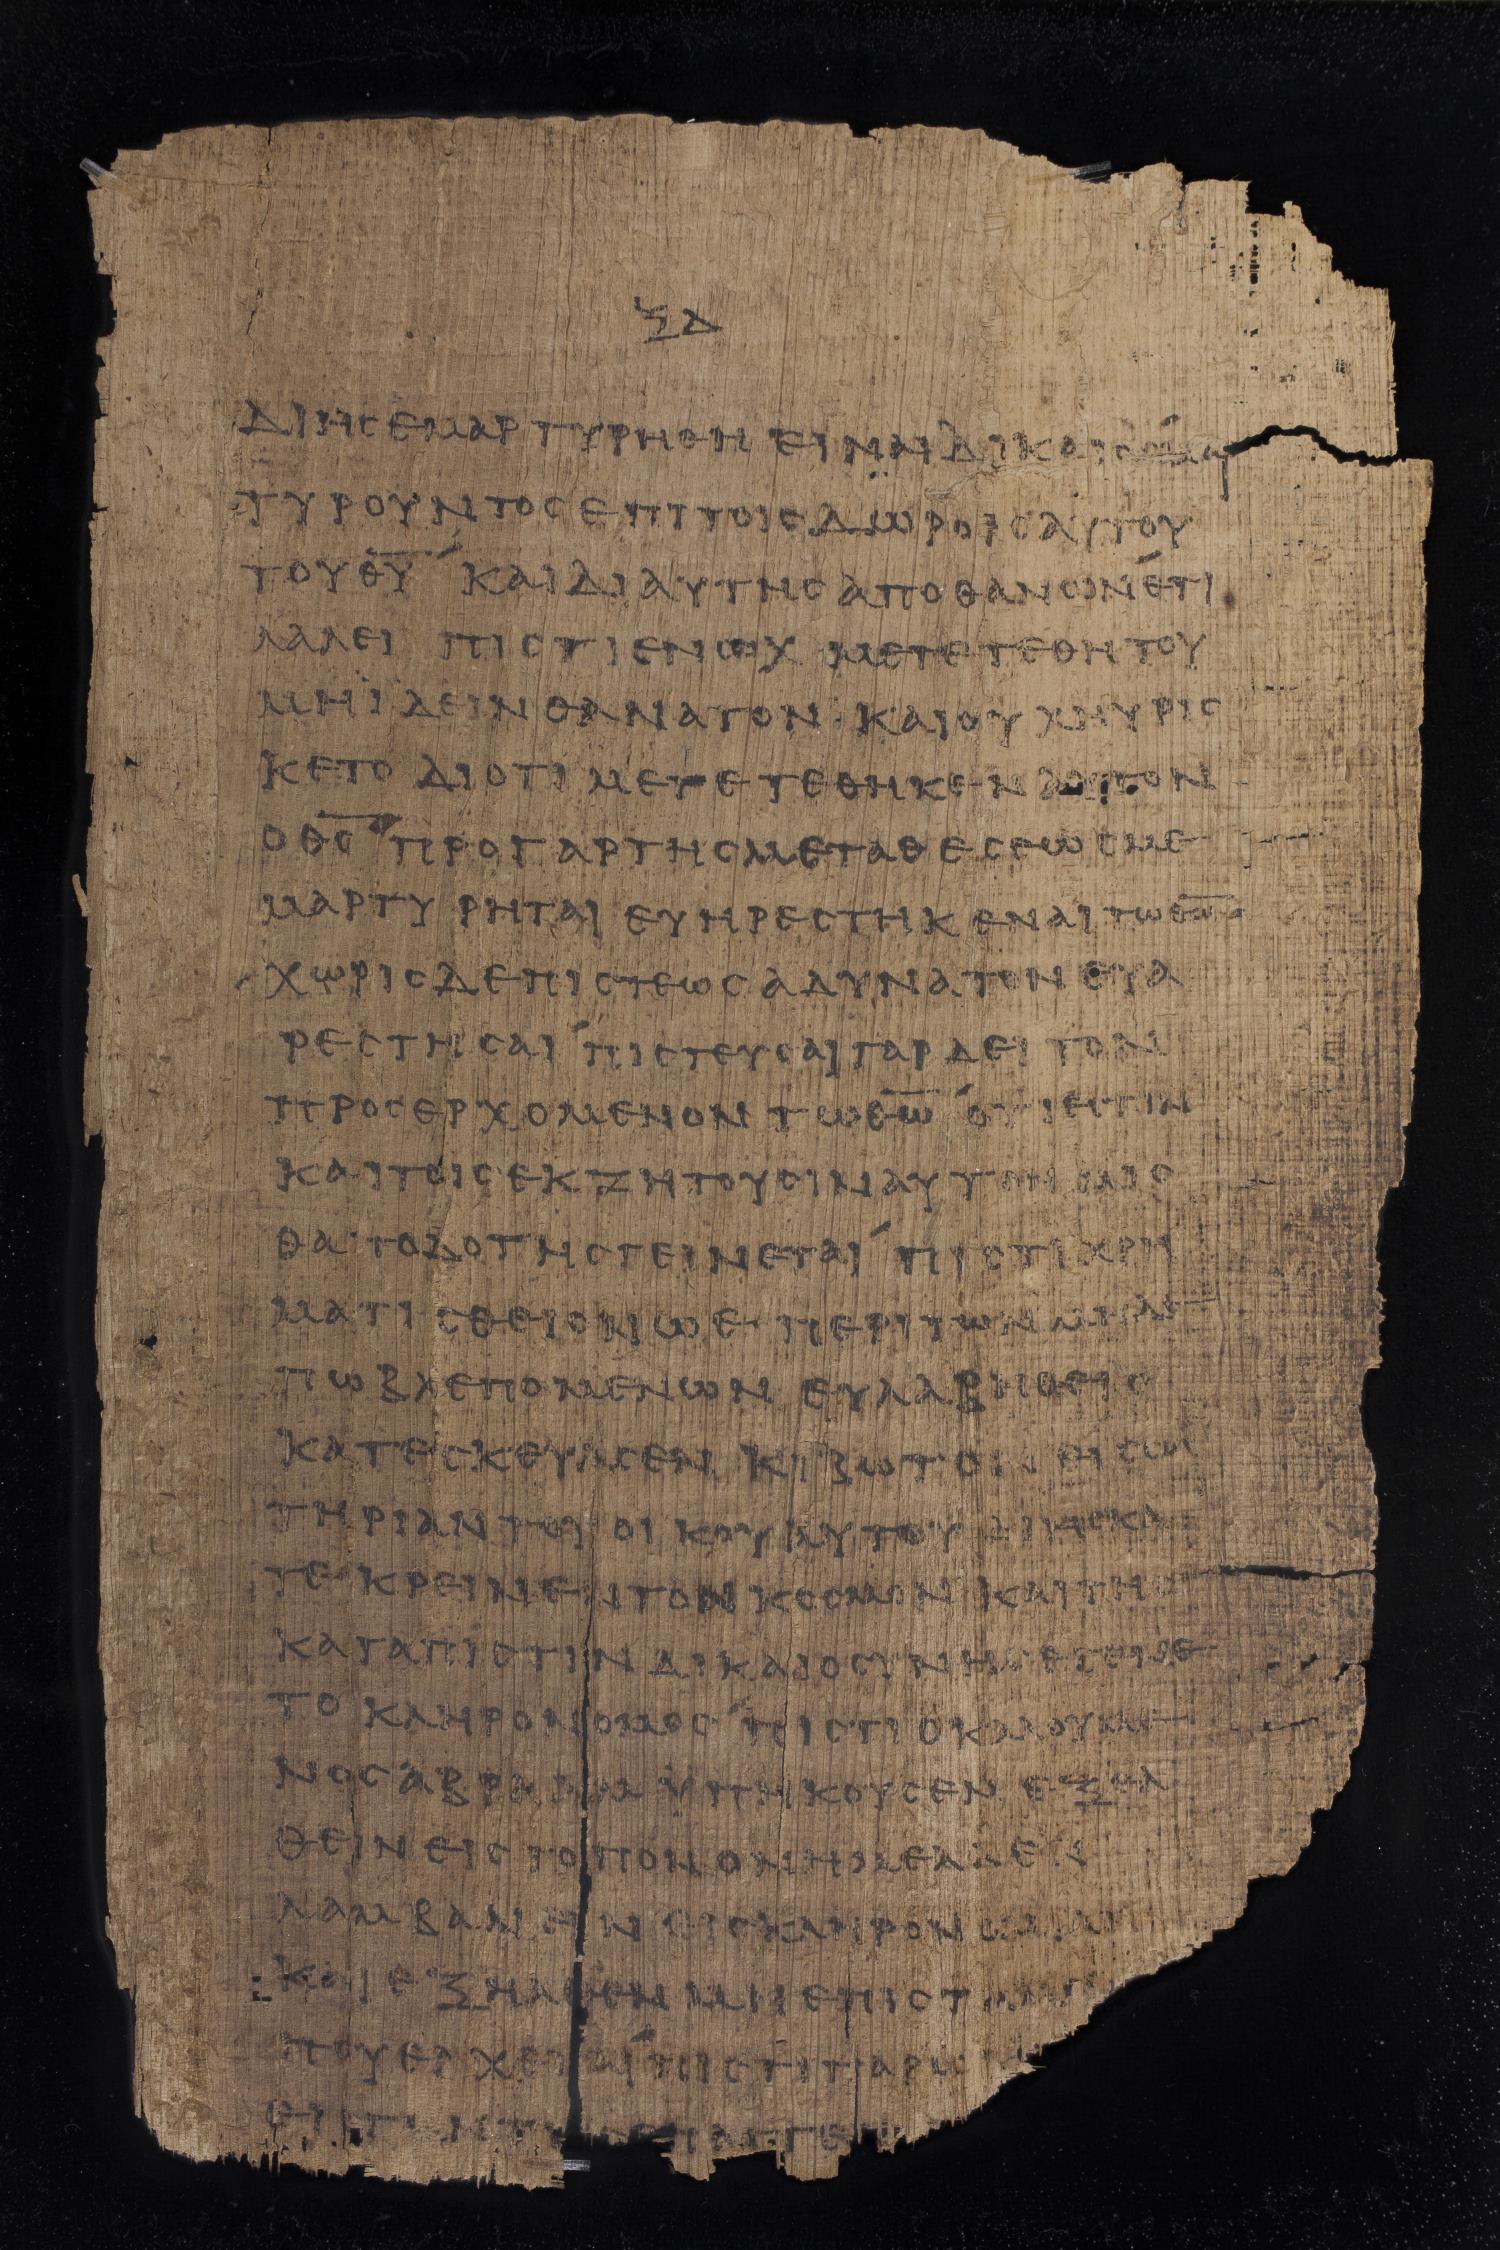 ΞΔ
ΔΙΗCΕΜΑΡΤΥΡΗΘΗ ΕΙΝΑΙ ΔΙΚΑΙΟC ΜΑΡ
ΤΥΡΟΥΝΤΟC ΕΠΙ ΤΟΙC ΔΩΡΟΙC ΑΥΤΟΥ
ΤΟΥ Θ̅Υ̅ ΚΑΙ ΔΙ ΑΥΤΗC ΑΠΟΘΑΝΩΝ ΕΤΙ
ΛΑΛΕΙ ΠΙCΤΙ ΕΝΩΧ ΜΕΤΕΤΕΘΗ ΤΟΥ
ΜΗ ΪΔΕΙΝ ΘΑΝΑΤΟΝ ΚΑΙ ΟΥΧ ΗΥΡΙC
ΚΕΤΟ ΔΙΟΤΙ ΜΕΤΕΤΕΘΗΚΕΝ ΑΥΤΟΝ
Ο Θ̅C̅ ΠΡΟ ΓΑΡ ΤΗC ΜΕΤΑΘΕCΕΩC ΜΕ
ΜΑΡΤΥΡΗΤΑΙ ΕΥΗΡΕCΤΗΚΕΝΑΙ ΤΩ Θ̅Ω̅
ΧΩΡΙC ΔΕ ΠΙCΤΕΩC ΑΔΥΝΑΤΟΝ ΕΥΑ
ΡΕCΤΗCΑΙ ΠΙCΤΕΥCΑΙ ΓΑΡ ΔΕΙ ΤΟΝ
ΠΡΟCΕΡΧΟΜΕΝΟΝ ΤΩ Θ̅Ω̅ ΟΤΙ ΕCΤΙΝ
ΚΑΙ ΤΟΙC ΕΚΖΗΤΟΥCΙΝ ΑΥΤΟΝ ΜΙC
ΘΑΠΟΔΟΤΗC ΓΕΙΝΕΤΑΙ ΠΙCΤΙ ΧΡΗ
ΜΑΤΙCΘΕΙC ΝΩΕ ΠΕΡΙ ΤΩΝ ΜΗΔΕ
ΠΩ ΒΛΕΠΟΜΕΝΩΝ ΕΥΛΑΒΗΘΕΙC
ΚΑΤΕCΚΕΥΑCΕΝ ΚΙΒΩΤΟΝ ΕΙC CΩ
ΤΗΡΙΑΝ ΤΟΥ ΟΙΚΟΥ ΑΥΤΟΥ ΔΙ ΗC ΚΑ
ΤΕΚΡΕΙΝΕΝ ΤΟΝ ΚΟCΜΟΝ ΚΑΙ ΤΗC
ΚΑΤΑ ΠΙCΤΙΝ ΔΙΚΑΙΟCΥΝΗC ΕΓΕΝΕ
ΤΟ ΚΛΗΡΟΝΟΜΟC ΠΙCΤΙ Ο ΚΑΛΟΥΜΕ
ΝΟC ΑΒΡΑΑΜ ΫΠΗΚΟΥCΕΝ ΕΞΕΛ
ΘΕΙΝ ΕΙC ΤΟΠΟΝ ΟΝ ΗΜΕΛΛΕΝ
ΛΑΜΒΑΝΕΙΝ ΕΙC ΚΛΗΡΟΝΟΜΙΑΝ
ΚΑΙ ΕΞΗΛΘΕΝ ΜΗ ΕΠΙCΤΑΜΕΝΟC
ΠΟΥ ΕΡΧΕΤΑΙ ΠΙCΤΙ ΠΑΡΩ